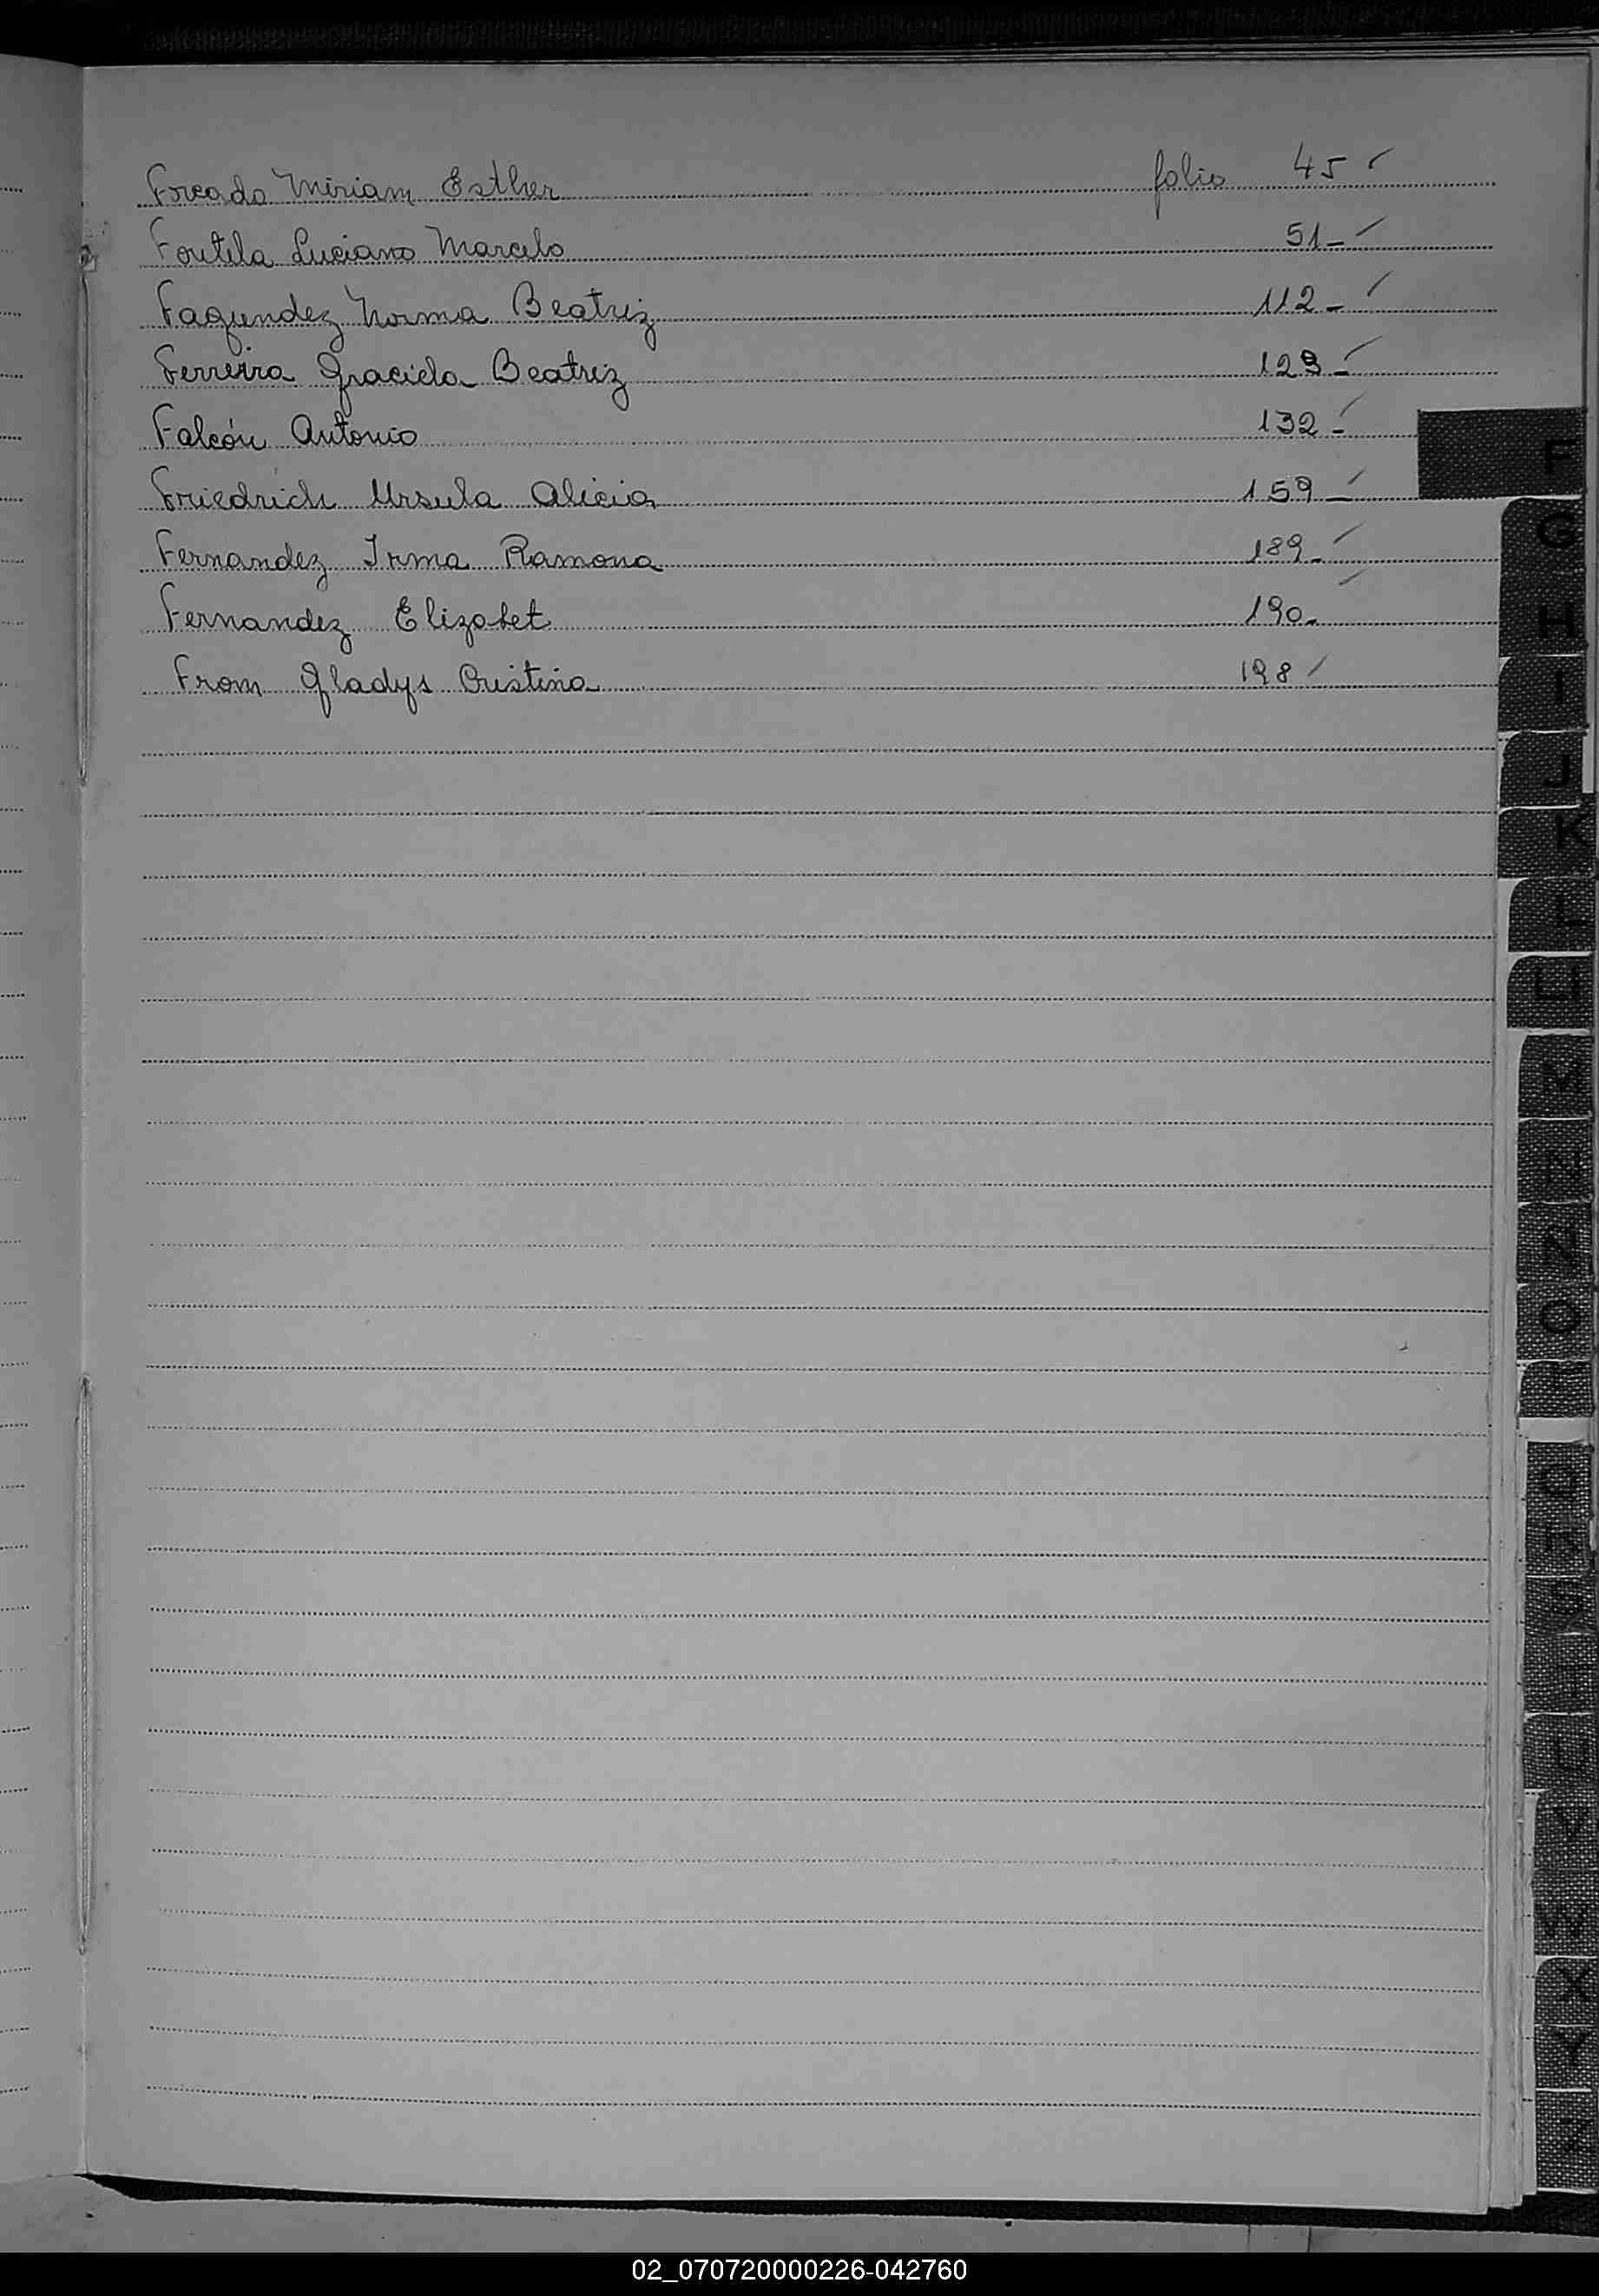 Forcado Miriam Esther folio 45 ✓
Foutela Luciano Marcelo 51- ✓
Fagundez Norma Beatriz 112- ✓
Ferreira Graciela Beatriz 129- ✓
Falcón Antonio 132- ✓
Friedrich Ursula Alicia 159- ✓
Fernandez Irma Ramona 189- ✓
Fernandez Elizabet 190- ✓
From Gladys Cristina 198 ✓
F
G
H
I
J
K
L
LL
M
N
Ñ
O
Q
R
S
T
U
V
W
X
Y
Z
02_070720000226-042760